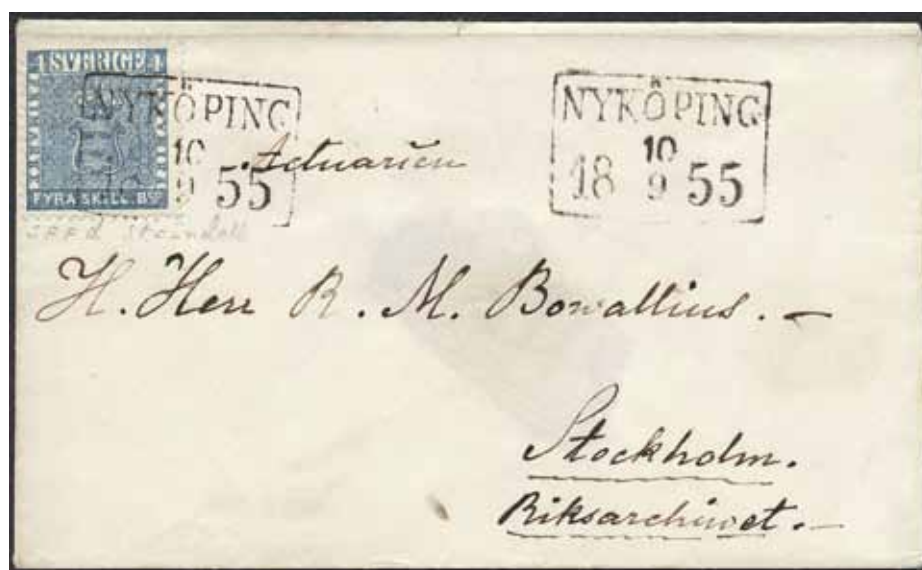 4 SVERIGE 4
FYRA SKILL. Bco
NYKÖPING
10
18 9 55
NYKÖPING
10
18 9 55
Actuarien
H. Herr R. M. Bowallius. —
Stockholm.
Riksarchivet. —